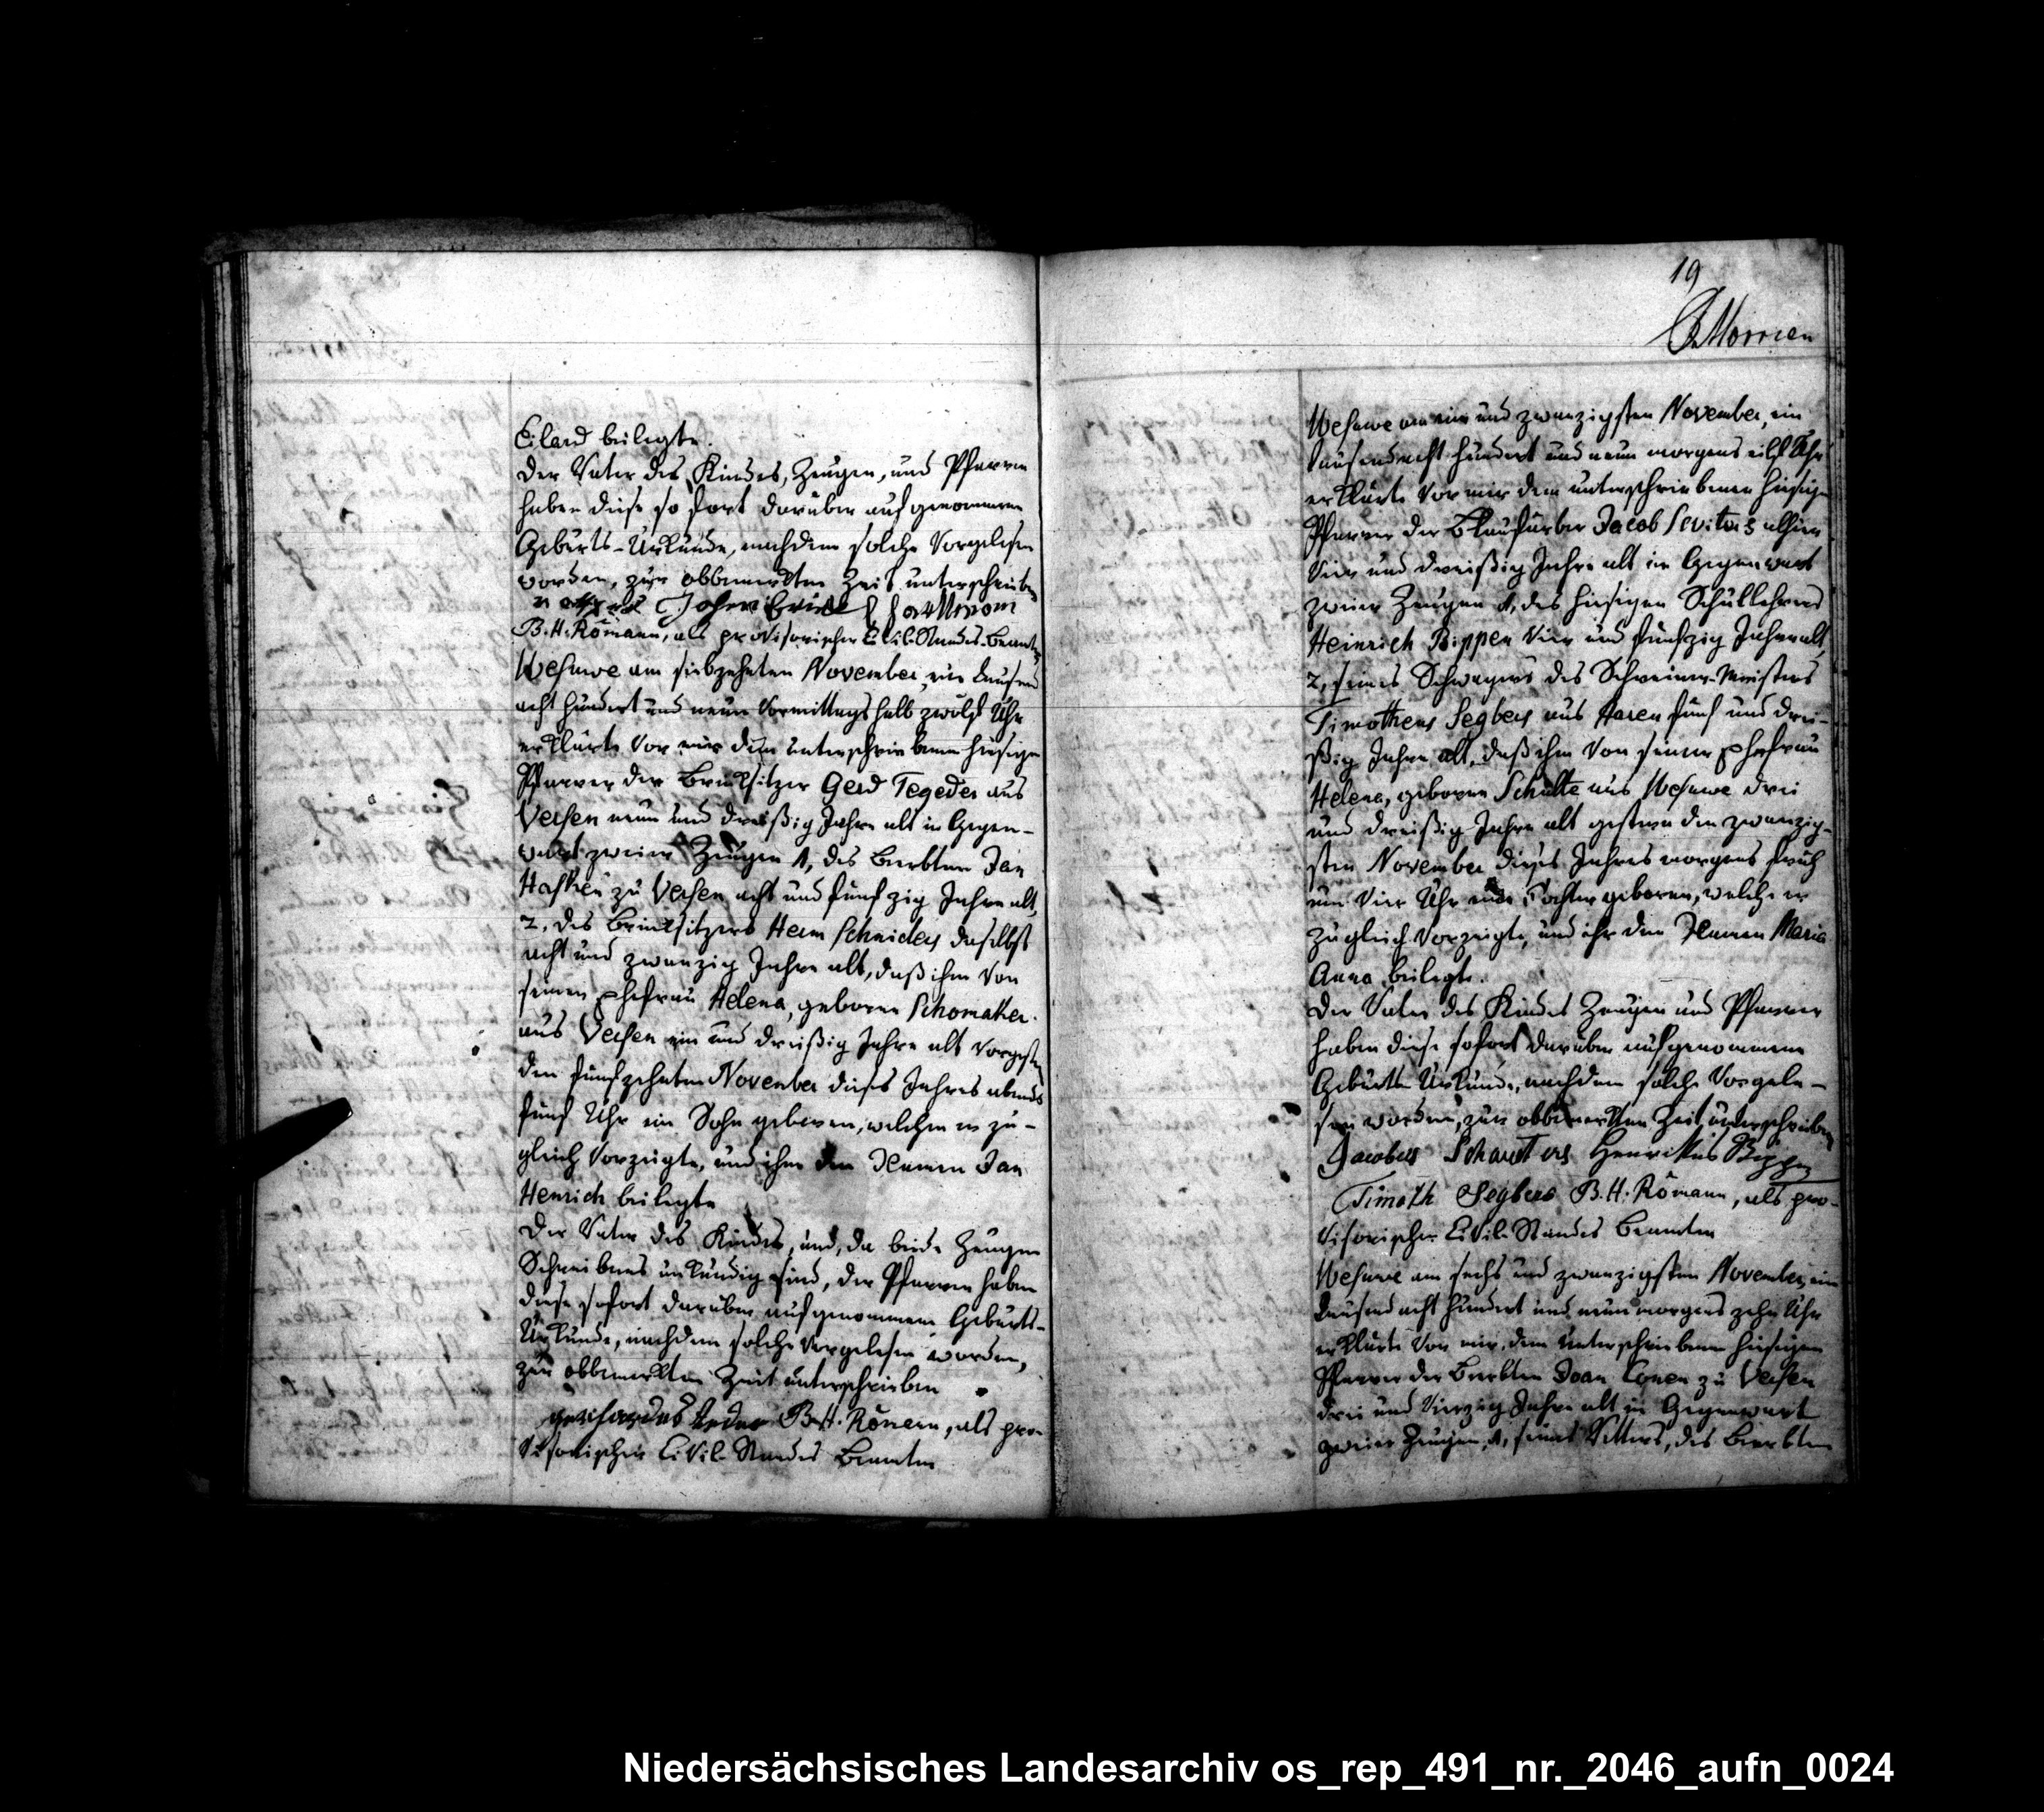 Eilard beilegte.
Der Vater des Kindes, Zeugen, und Pfarrer
haben diese so fort darüber aufgenommene
Geburts-Urkunde, nachdem solche vorgelesen
worden, zur obbemerkten Zeit unterschrieben
B. H. Römann, als provisorischer Civil-Standes-Beamter
Wesuwe am siebzehnten November, ein tausend
acht hundert und neun Vormittags halb zwölf Uhr
erklärte vor mir dem unterschriebenen hiesigen
Pfarrer der Brinksitzer Gerd Tegeder aus
Versen neun und dreißig Jahre alt in Gegen-
wart zweier Zeugen 1, des Beerbten Jan
zu Versen acht und fünfzig Jahre alt,
2, des Brinksitzers Herm Schniders daselbst
acht und zwanzig Jahre alt, daß ihm von
seiner Ehefrau Helena, geboren Schomaker
aus Versen ein und dreißig Jahre alt vorgestern
den fünfzehnten November dieses Jahres abends
fünf Uhr ein Sohn geboren, welchen er zu-
gleich vorzeigte, und ihm den Namen Jan
Henrich beilegte
Der Vater des Kindes, und, da beide Zeugen
Schreibens unkundig sind, der Pfarrer haben
diese sofort darüber aufgenommene Geburts-
Urkunde, nachdem solche vorgelesen worden,
zur obbemerkten Zeit unterschrieben
B. H. Römann, als pro-
visorischer Civil-Standes Beamten
19
Morrien
Wesuwe am ein und zwanzigsten November, ein
tausend acht hundert und neun morgens eilf Uhr
erklärte vor mir dem unterschriebenen hiesigen
Pfarrer der Blaufärber Jacob alhier
vier und dreißig Jahre alt in Gegenwart
zweier Zeugen 1, des hiesigen Schullehrers
Heinrich Bippen vier und fünfzig Jahre alt,
2, seines Schwagers des Schreiner-Meisters
Timotheus Segbers aus Haren fünf und drei-
ßig Jahre alt, daß ihm von seiner Ehefrau
Helena, geboren Schulte aus Wesuwe drei
und dreißig Jahre alt gestern den zwanzig-
sten November dieses Jahres morgens früh
um vier Uhr eine Tochter geboren, welche er
zugleich vorzeigte, und ihr den Namen Maria
Anna beilegte.
Der Vater des Kindes Zeugen und Pfarrer
haben diese sofort darüber aufgenommene
Geburts-Urkunde, nachdem solche vorgele-
sen worden, zur obbemerkten Zeit unterschrieben
Jacobus Henrikus Bippen
Timoth Segbers B. H. Römann, als pro-
visorischer Civil-Standes Beamten
Wesuwe am sechs und zwanzigsten November, ein
tausend acht hundert und neun morgens zehn Uhr
erklärte vor mir, dem unterschriebenen hiesigen
Pfarrer der Beerbten Joan Conen zu Versen
drei und vierzig Jahre alt in Gegenwart
zweier Zeugen, 1, seines Vetters, des Beerbten
Niedersächsisches Landesarchiv os_rep_491_nr._2046_aufn_0024